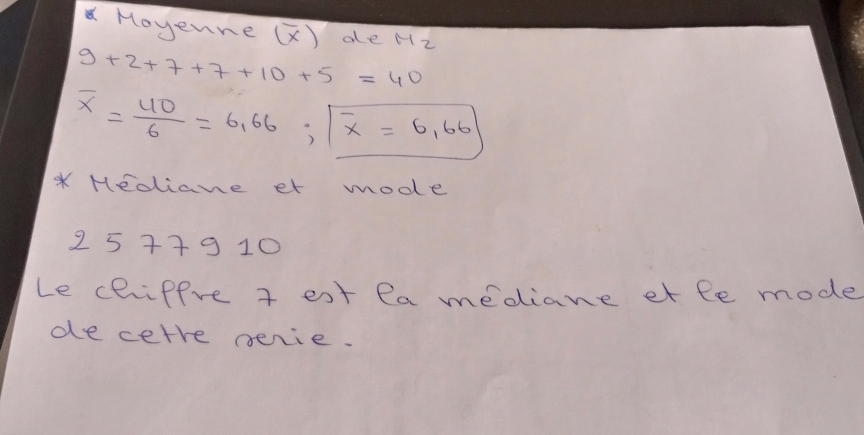 * Moyenne (x̄) de M2
9+2+7+7+10+5 = 40
x̄ = 40/6 = 6,66 ; x̄ = 6,66
* Médiane et mode
2 5 7 7 9 10
Le chiffre 7 est la médiane et le mode
de cette serie.